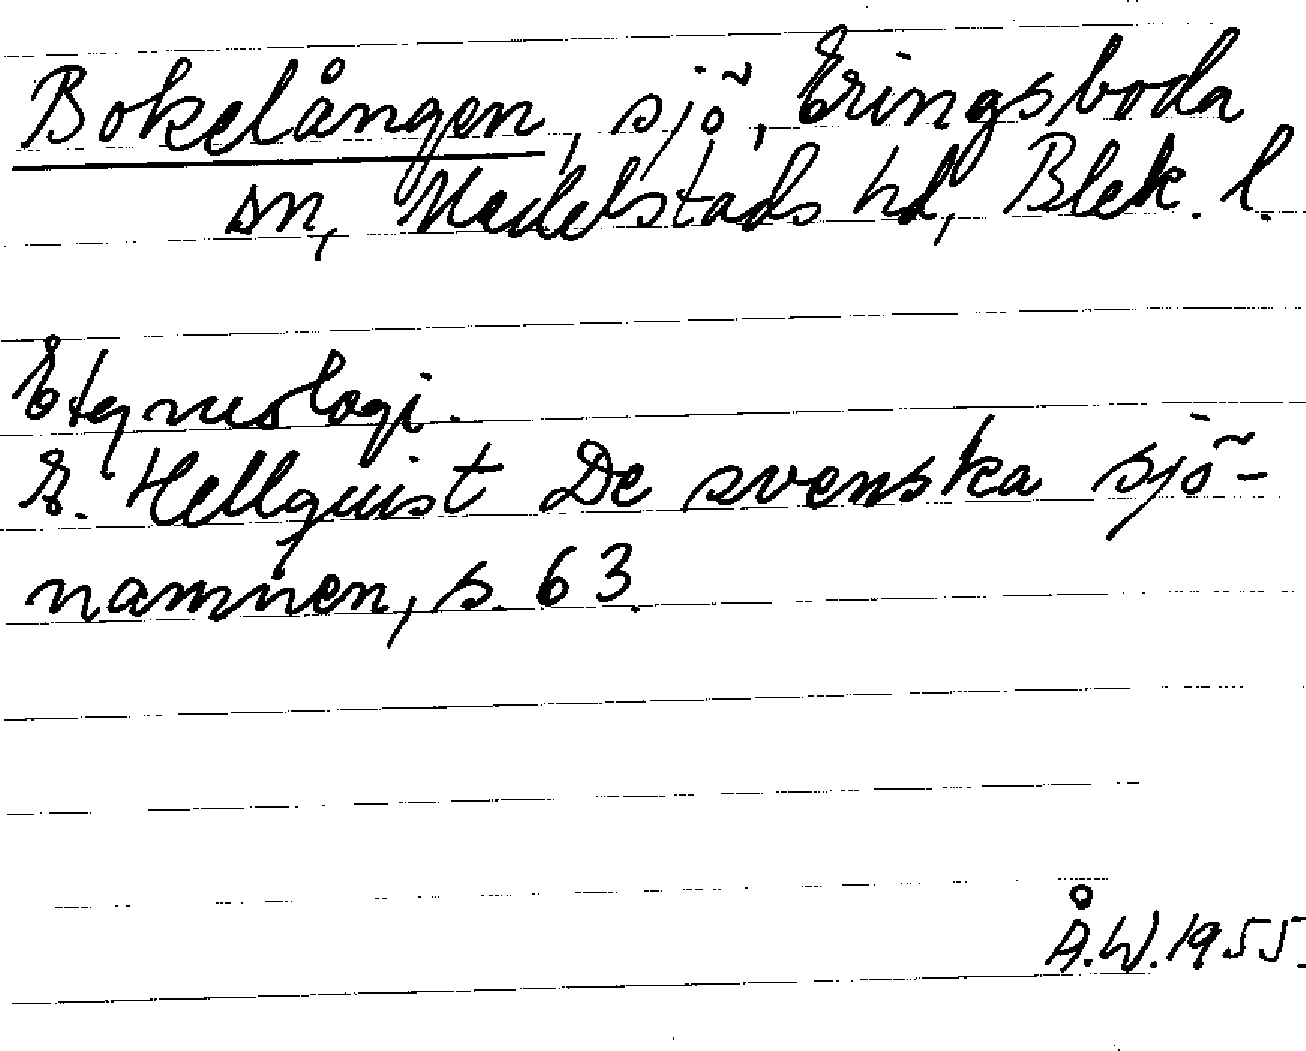 Bokelången, sjö, Eringsboda
sn, Medelstads hd, Blek. l.
Etymologi.
E. Hellquist De svenska sjö-
namnen, s. 63.
Å.W. 1955.